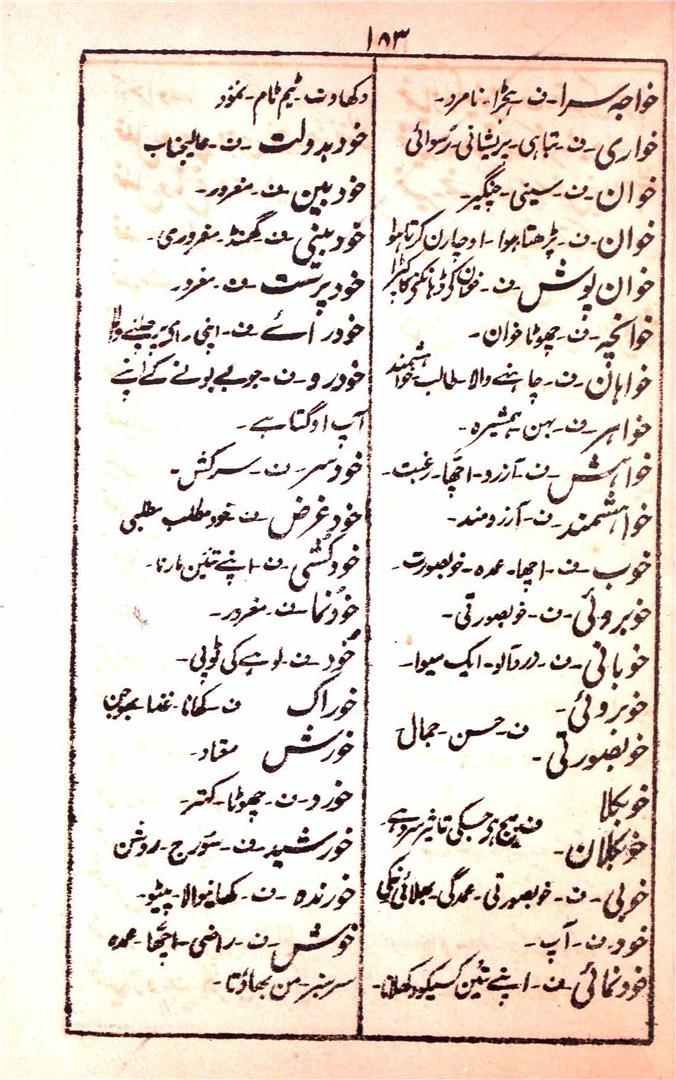 ۱۸۳
خواجہ سرا۔ ف۔ ہیجڑا۔ نامرد۔
خواری۔ ف۔ تباہی۔ پریشانی۔ رسوائی
خوان۔ ف۔ سینی۔ چنگیر۔
خوان۔ ف۔ پڑھتا ہوا۔ اوچارن کرتا ہوا
خوان پوش۔ ف۔ خوان کے ڈہانکنے کا کپڑا
خوانچہ۔ ف۔ چھوٹا خوان۔
خواہاں۔ ف۔ چاہنے والا۔ طالب۔ خواہشمند
خواہر۔ ف۔ بہن۔ ہمشیرہ۔
خواہش۔ ف۔ آرزو۔ اچھا۔ رغبت۔
خواہشمند۔ ف۔ آرزومند۔
خوب۔ ف۔ اچھا۔ عمدہ۔ خوبصورت۔
خوبروئی۔ ف۔ خوبصورتی۔
خوبانی۔ ف۔ زردآلو۔ ایک میوا۔
خوبروئی۔
خوبصورتی۔ ف۔ حسن۔ جمال
خوبکلا
خوبکلان۔ ف۔ بیج ہر جسکی تاثیر سرد ہے
خوبی۔ ف۔ خوبصورتی۔ عمدگی۔ بھلائی۔ نیکی
خود۔ ف۔ آپ۔
خودنمائی۔ ف۔ اپنے تئین کسیکو دکھلانا۔
دکھاوت۔ ٹیم ٹام۔ نمود
خود بدولت۔ ف۔ عالیجناب
خودبین۔ ف۔ مغرور۔
خودبینی۔ ف۔ گھمنڈ۔ مغروری۔
خودپرست۔ ف۔ مغرور۔
خودرائے۔ ف۔ اپنی رائے پر چلنے والا
خودرو۔ ف۔ جو بے بونے کے اپنے
آپ اوگتا ہے۔
خودسر۔ ف۔ سرکش۔
خودغرض۔ ف۔ خودمطلب مطلبی
خودکُشی۔ ف۔ اپنے تئین مارنا۔
خودنُما۔ ف۔ مغرور۔
خُود۔ ف۔ لوہے کی ٹوپی۔
خوراک ف۔ کھانا۔ غذا۔ بھوجن
خورش مقداد۔
خورد۔ ف۔ چھوٹا۔ کمتر۔
خورشید۔ ف۔ سورج۔ روشن
خورندہ۔ ف۔ کھانیوالا۔ پیٹو۔
خوش۔ ف۔ راضی۔ اچھا۔ عمدہ
سرسبز۔ من بھاؤتا۔